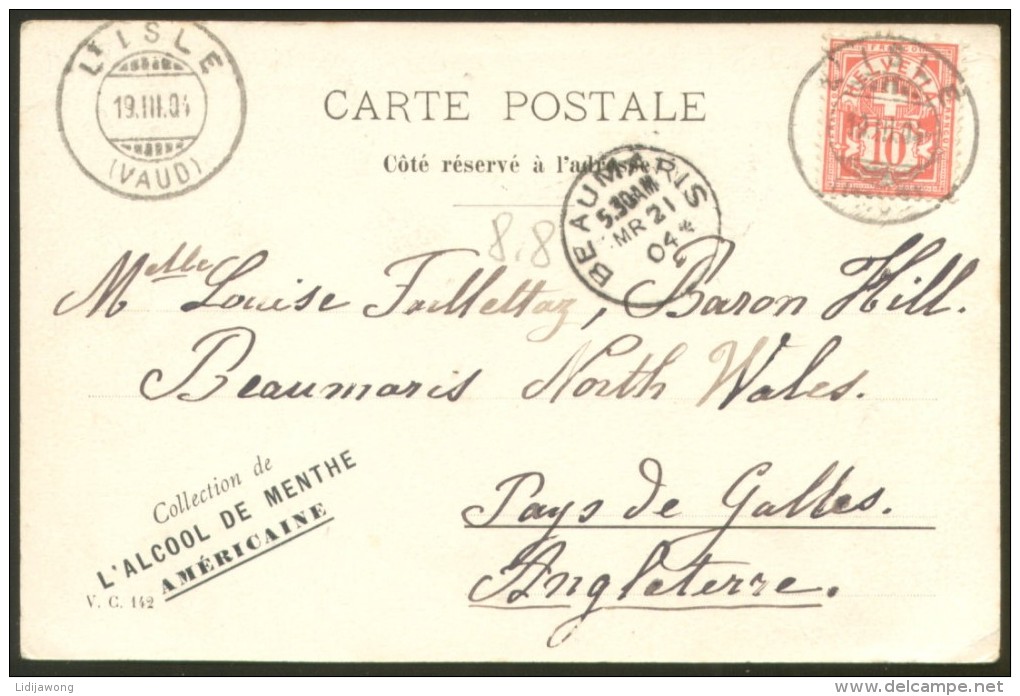 L'ISLE
19.III.04
(VAUD)
CARTE POSTALE
Côté réservé à l'adresse
FRANCO
HELVETIA
10
BEAUMARIS
5.30AM
MR 21
04
8.8
Melle Louise Taillettaz, Baron Hill.
Beaumaris North Wales.
Pays de Galles.
Angleterre.
Collection de
L'ALCOOL DE MENTHE
AMÉRICAINE
V. C. 142
Lidijawong
delcampe.net